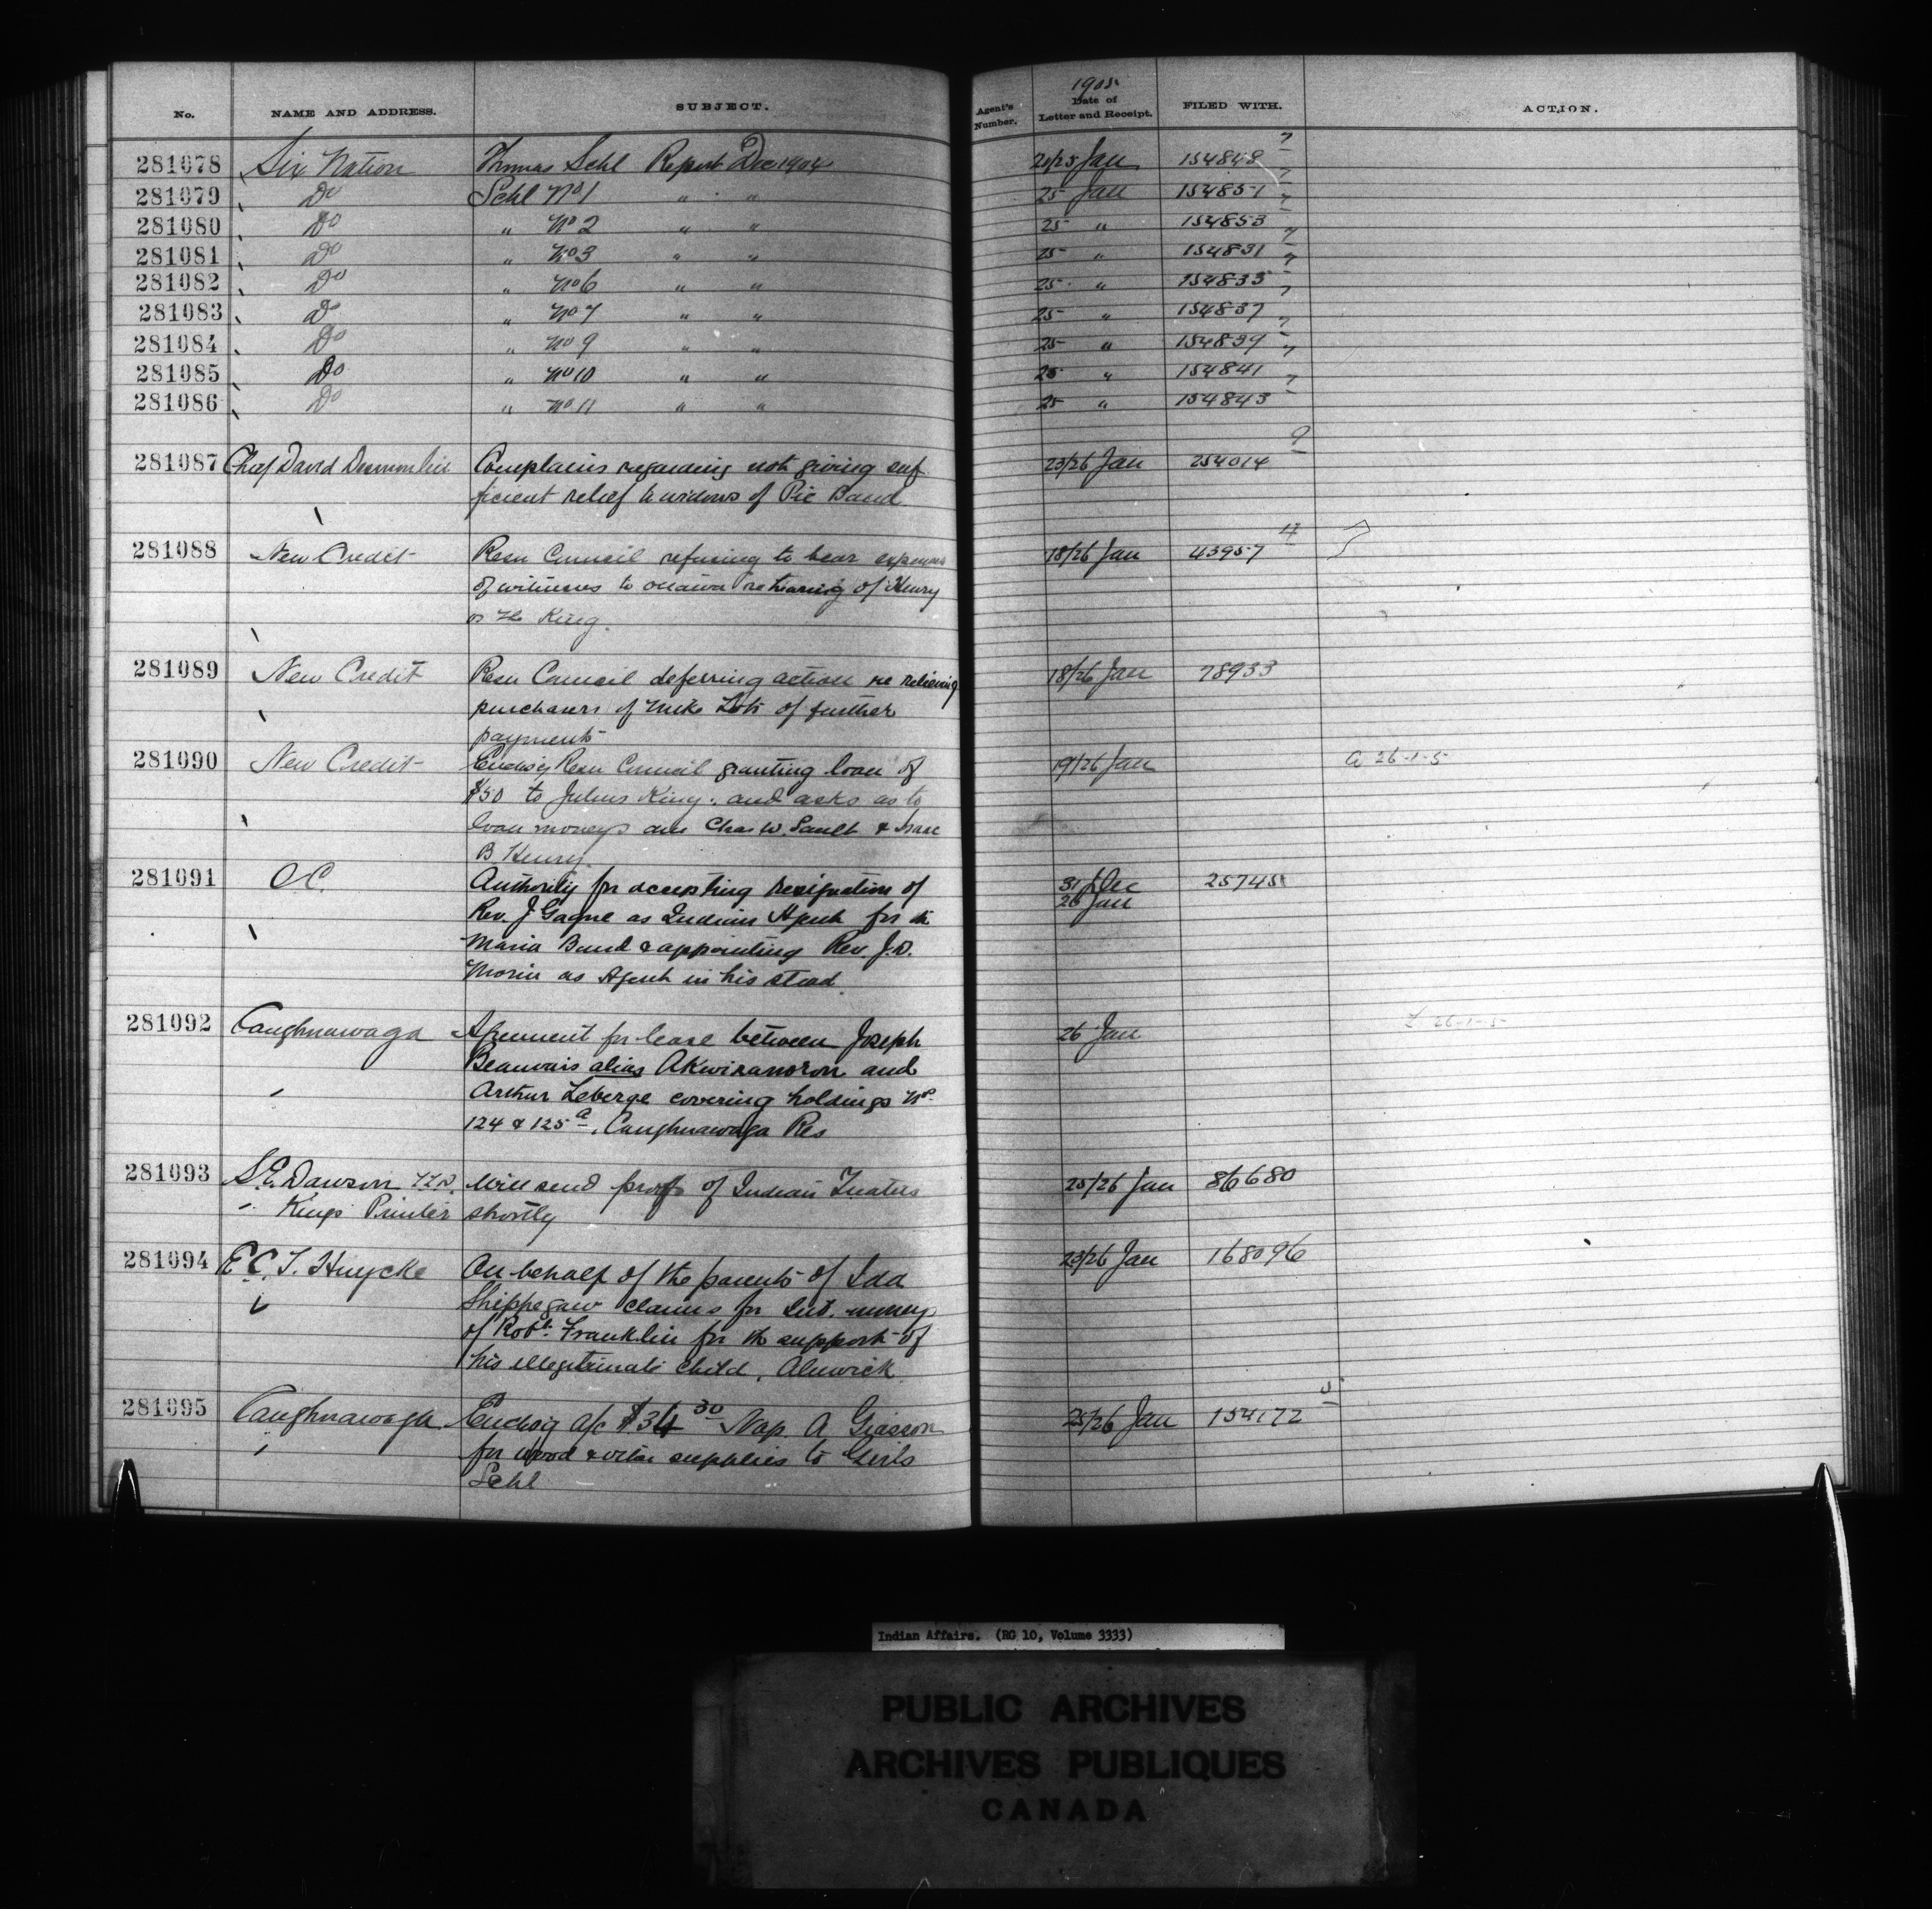 No. NAME AND ADDRESS. SUBJECT. Agent's Number. 1905 Date of Letter and Receipt. FILED WITH. ACTION.
281078 Six Nation Thomas Schl Report Dec 1904 20/25 Jan 154848 7
281079 Do Schl No 1 " " 25 Jan 154851 7
281080 Do " No 2 " " 25 " 154853 7
281081 Do " No 3 " " 25 " 154831 7
281082 Do " No 6 " " 25 " 154835 7
281083 Do " No 7 " " 25 " 154837 7
281084 Do " No 9 " " 25 " 154839 7
281085 Do " No 10 " " 25 " 154841 7
281086 Do " No 11 " " 25 " 154843 7
281087 Chief David Complains regarding not giving suf 23/26 Jan 254014 9
ficient relief to widows of Pic Band
281088 New Credit Resn Council refusing to bear expenses 18/26 Jan 43957
of witnesses to Ottawa re hearing of Henry
vs The King.
281089 New Credit Resn Council deferring action re relieving 18/26 Jan 78933
purchasers of Lots of further
payments
281090 New Credit Enclosg Resn Council granting loan of 19/26 Jan A 26-1-5
$50 to Julius King. and asks as to
loan moneys Chas W. Sault & Isaac
B. Henry.
281091 O C. Authority for accepting resignation of 31 Dec 26 Jan 257451
Rev. J Gagne as Indian Agent for the
Maria Band & appointing Rev. J.D.
Morin as Agent in his stead.
281092 Caughnawaga Agreement for lease between Joseph 26 Jan 26-1-5
Beauvais alias Akwiranoron and
Arthur Leberge covering holdings Nos
124 & 125a, Caughnawaga Res
281093 S.E. Dawson Will send proofs of Indian Treaties 25/26 Jan 86680
Kings Printer shortly
281094 E C. J. Huycke On behalf of the parents of Ida 23/26 Jan 168096
Shippegaw claims for Int. money
of Robt. Franklin for the support of
his illegitimate child, Alnwick
281095 Caughnawaga Enclosg a/c $34 30 Nap. A Giasson 25/26 Jan 154172 5
for wood & other supplies to Girls
Schl
Indian Affairs. (RG 10, Volume 3333)
PUBLIC ARCHIVES
ARCHIVES PUBLIQUES
CANADA